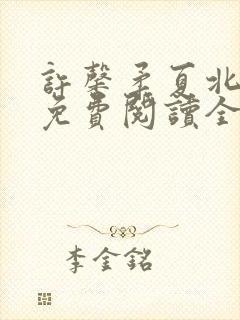 許馨矛夏北
免費閱讀全
李金銘